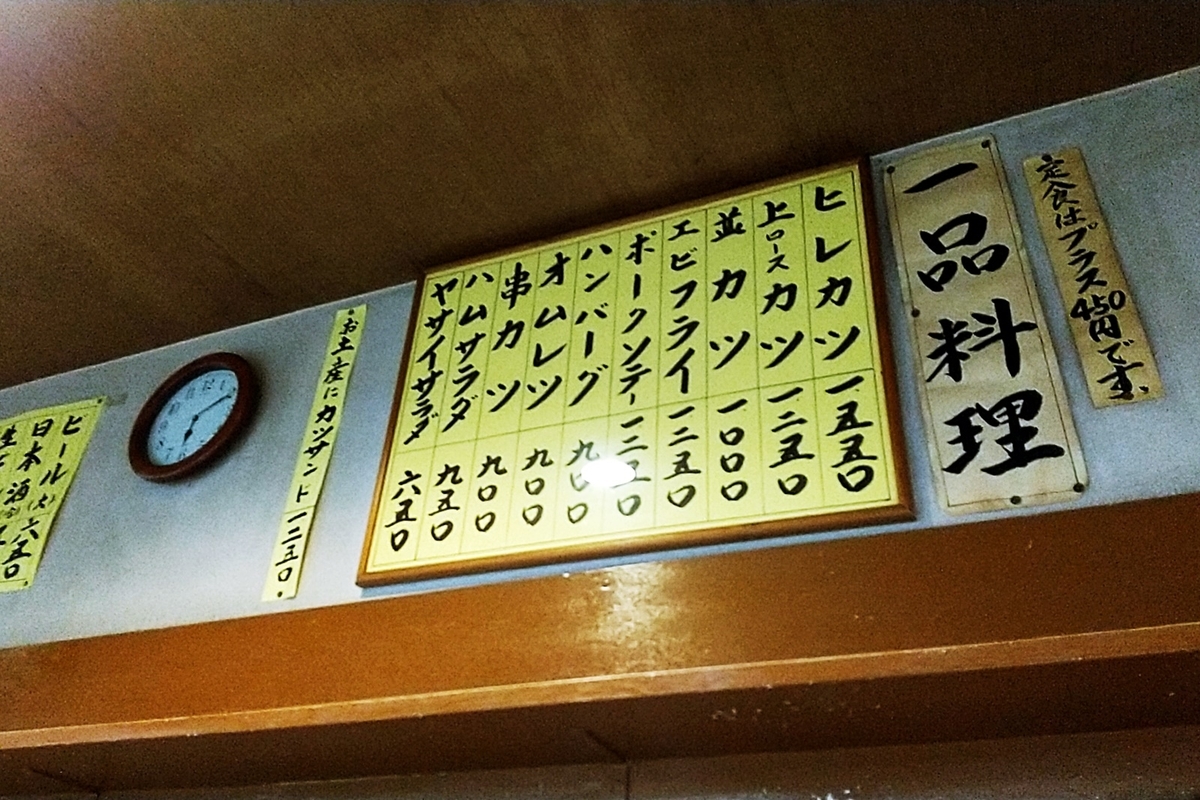 定食はプラス450円です。
一品料理
ヒレカツ 一五五〇
上ロースカツ 一二五〇
並カツ 一〇〇〇
エビフライ 一二五〇
ポークソテー 一三五〇
ハンバーグ 九〇〇
オムレツ 九〇〇
串カツ 九〇〇
ハムサラダ 九五〇
ヤサイサラダ 六五〇
お土産にカツサンド 一二五〇
ビール(大) 六五〇
日本酒